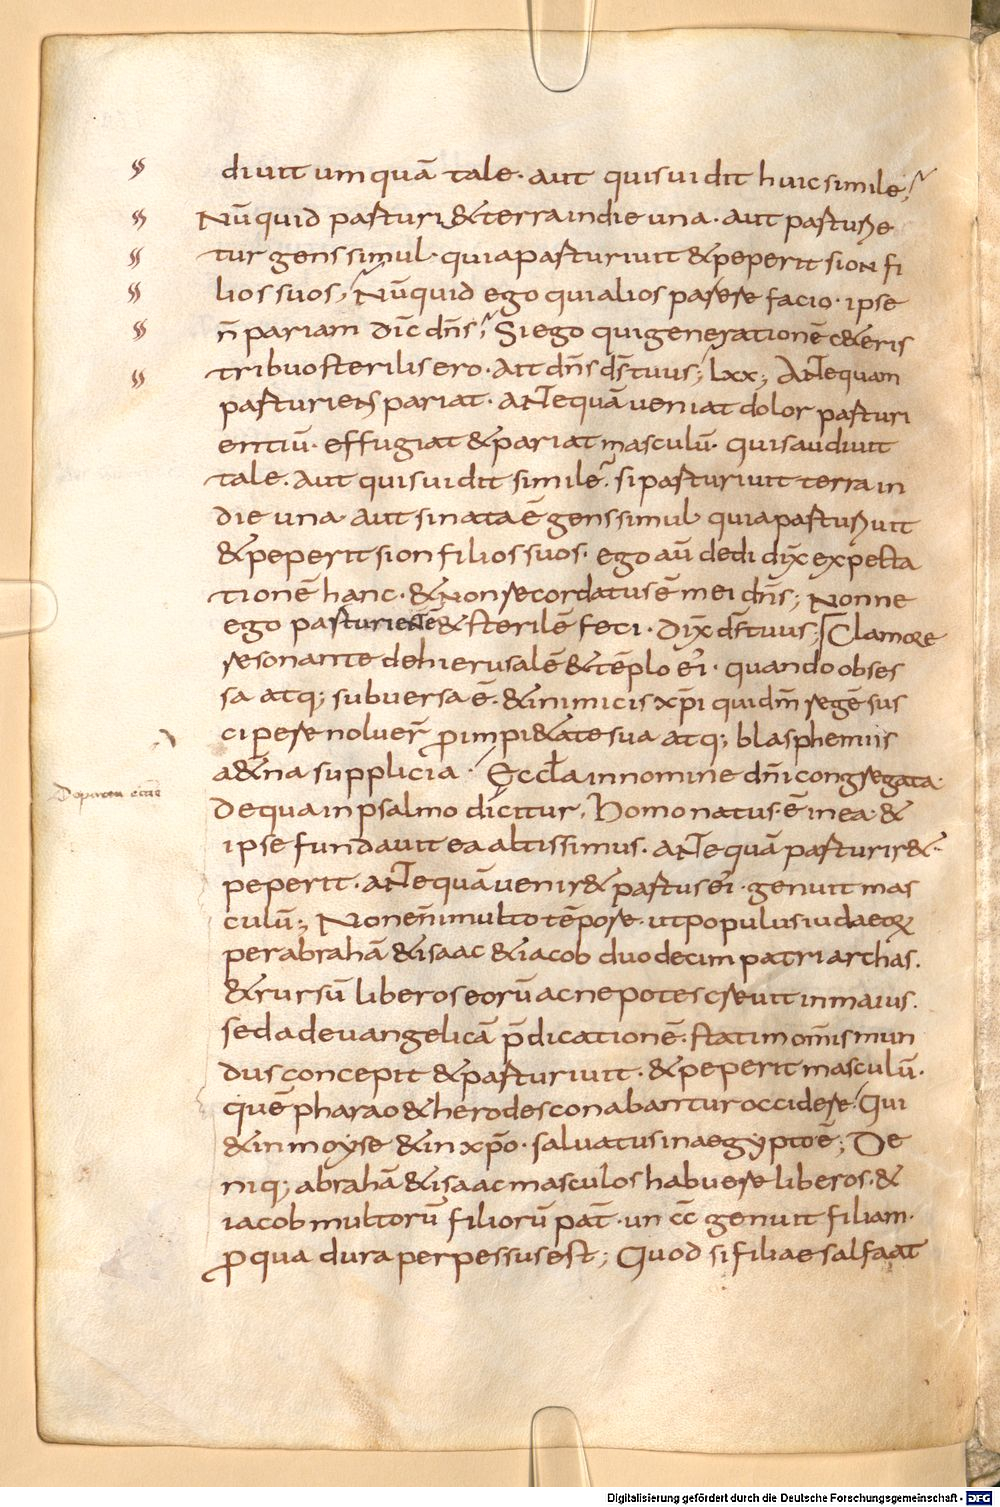 diuit umquā tale. aut quis uidit huic simile?
Nūquid parturi&terra in die una. aut parture
tur gens simul. quia parturiuit & peperit sion fi
lios suos; Nūquid ego qui alios parere facio. ipse
n̄ pariam dic̄ dn̄s? Si ego qui generationē c&eris
tribuo sterilis ero. Ait dn̄s ds̄ tuus; lxx; ANtequam
parturiens pariat. ANtequā ueniat dolor parturi
entiū. effugiat & pariat masculū. quis audiuit
tale. Aut quis uidit simile? si parturiuit terra in
die una. Aut si nata ē gens simul. quia parturuit
& peperit sion filios suos. ego aū dedi dix̄ expecta
tionē hanc. & Non recordatus ē mei dn̄s; Nonne
ego parturientē & sterilē feci. dix̄ ds̄ tuus; Clamore
resonante de hierusalē & tēplo ei᾽. quando obses
sa atq; subuersa ē. & inimicis xp̄i qui dn̄m regē sus
cipere noluer̄ ꝓ impi&ate sua atq; blasphemiis
a&erna supplicia. Eccl̄a in nomine dn̄i congregata.
De qua in psalmo dicitur. Homo natus. ē in ea. &
ipse fundauit ea altissimus. ANtequā parturir&.
peperit. ANtequā uenir& partus ei᾽. genuit mas
culū; Non eni᾽ multo tēpore. ut populus iudaeoꝝ
per abrahā & isaac & iacob duodecim patriarchas.
& rursū liberos eorū ac nepotes creuit in maius.
sed ad euangelicā p̄dicationē. statim om̄is mun
dus concepit & parturiuit. & peperit masculū.
quē pharao & herodes conabantur occidere. Qui
& in moyse & in xp̄o. saluatus in aegypto ē; De
niq; abrahā & isaac masculos habuere liberos. &
iacob multorū filiorū pat̄. un cc̄ genuit filiam.
ꝓ qua dura perpessus est; Quod si filiae salfaat
De partu eccl̄e